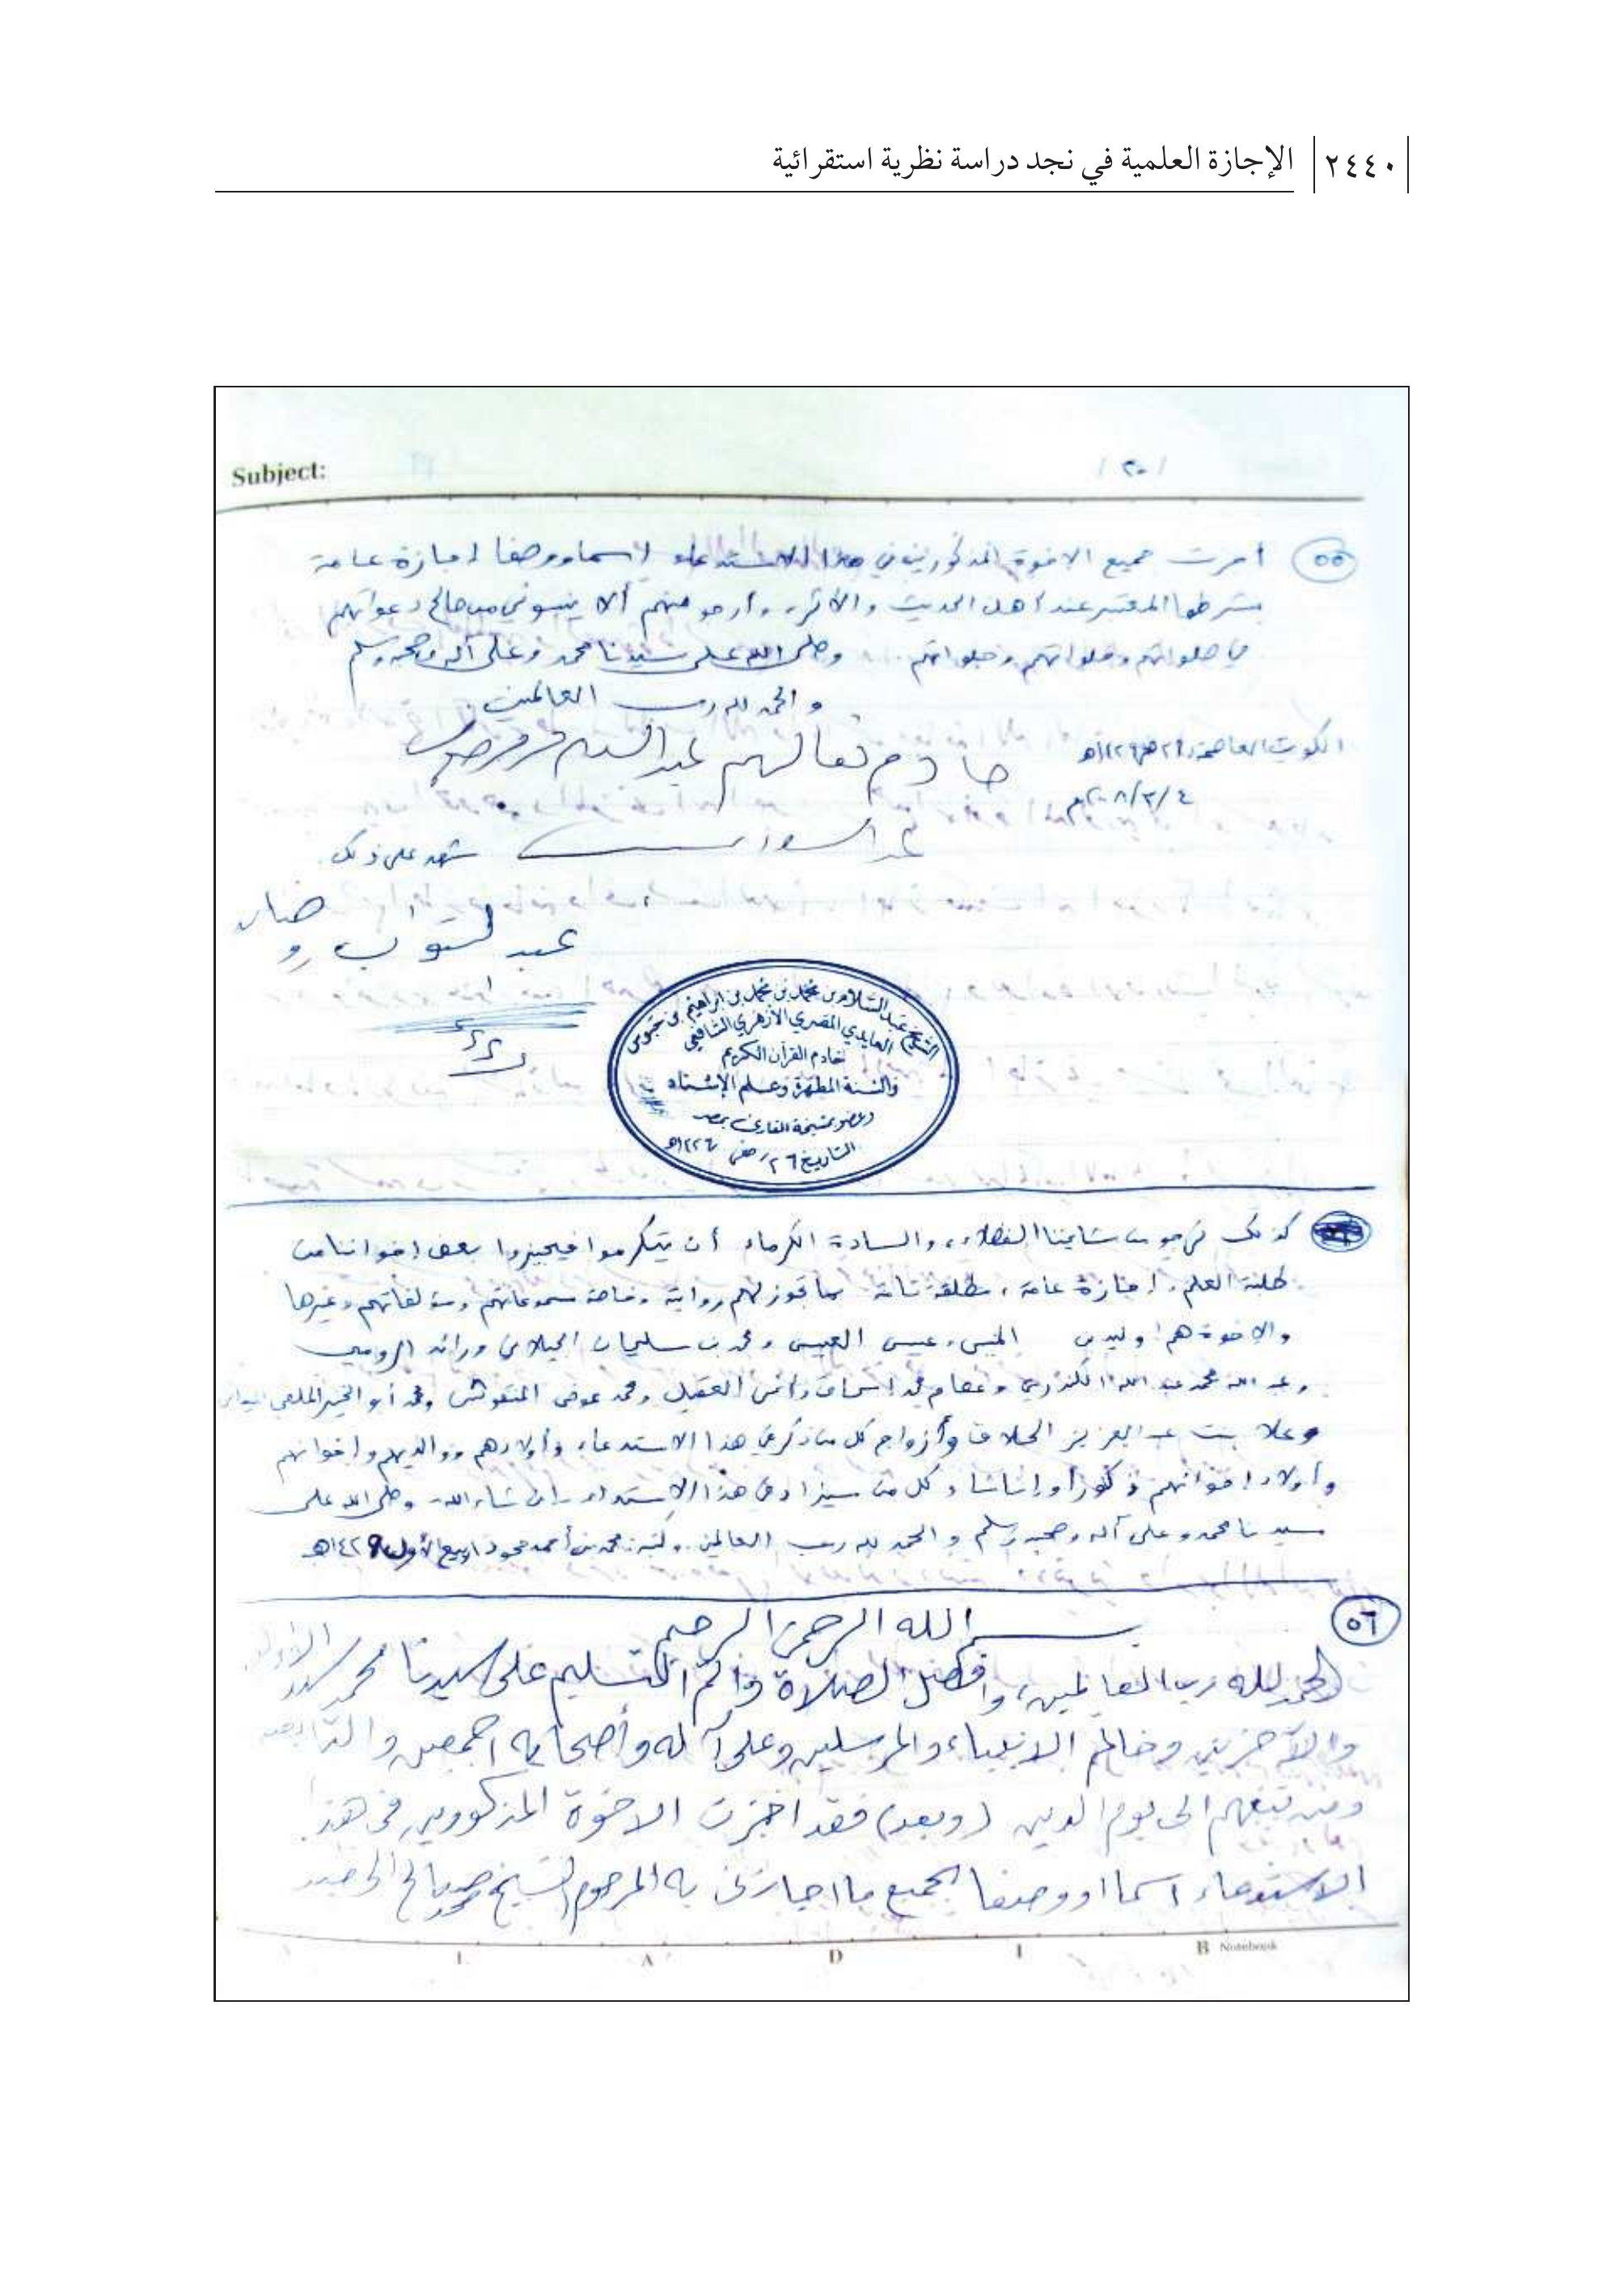 ٢٤٤٠ الإجازة العلمية في نجد دراسة نظرية استقرائية
Subject:
/ ٣٠ /
٥٥ أجزت جميع الاخوة المذكورين في هذا الاستدعاء اسما ووصفا إجازة عامة
بشرطها المعتبر عند أهل الحديث والأثر، وأرجو منهم ألا ينسوني من صالح دعواتهم
في صلواتهم وخلواتهم وجلواتهم .. وصلى الله على سيدنا محمد وعلى آله وصحبه وسلم
والحمد لله رب العالمين.
الكويت العاصمة
خادم نعالهم عبد السلام
شهد على ذلك
عبد التواب
الشيخ عبد السلام بن محمد بن محمد بن إبراهيم بن حبوس
العايدي المصري الأزهري الشافعي
خادم القرآن الكريم
والسنة المطهرة وعلم الإسناد
وعضو مشيخة المقارئ بمصر
التاريخ ٢٦ / صفر
كذلك نرجو من مشايخنا الفضلاء، والسادة الكرماء أن يتكرموا فيجيزوا بعض إخواننا من
طلبة العلم، إجازة عامة، مطلقة تامة بما تجوز لهم روايته وخاصة مسموعاتهم ومؤلفاتهم وغيرها
والإخوة هم: وليد بن عيسى ومحمد بن سليمان ورائد الرومي
وعبد الله محمد عبد الله الكندري وعصام محمد إسحاق وأنس العقيل ومحمد عوض المنقوش ومحمد أبو الخير
وعلا بنت عبد العزيز وأزواج كل من ذكر في هذا الاستدعاء وأولادهم ووالديهم وإخوانهم
وأولاد إخوانهم ذكورا وإناثا، وكل من سيزاد في هذا الاستدعاء إن شاء الله. وصلى الله على
سيدنا محمد وعلى آله وصحبه وسلم والحمد لله رب العالمين. وكتبه: محمد بن أحمد محمود ربيع الأول ١٤٢٩هـ
٥٦ بسم الله الرحمن الرحيم
الحمد لله رب العالمين، وأفضل الصلاة وأتم التسليم على سيدنا محمد سيد الأولين
والآخرين وخاتم الانبياء والمرسلين وعلى آله وأصحابه اجمعين والتابعين
ومن تبعهم الى يوم الدين (وبعد) فقد اجزت الاخوة المذكورين فى هذا
الاستدعاء اسما او وصفا بجميع ما اجازنى به المرحوم الشيخ
L A D I B Notebook